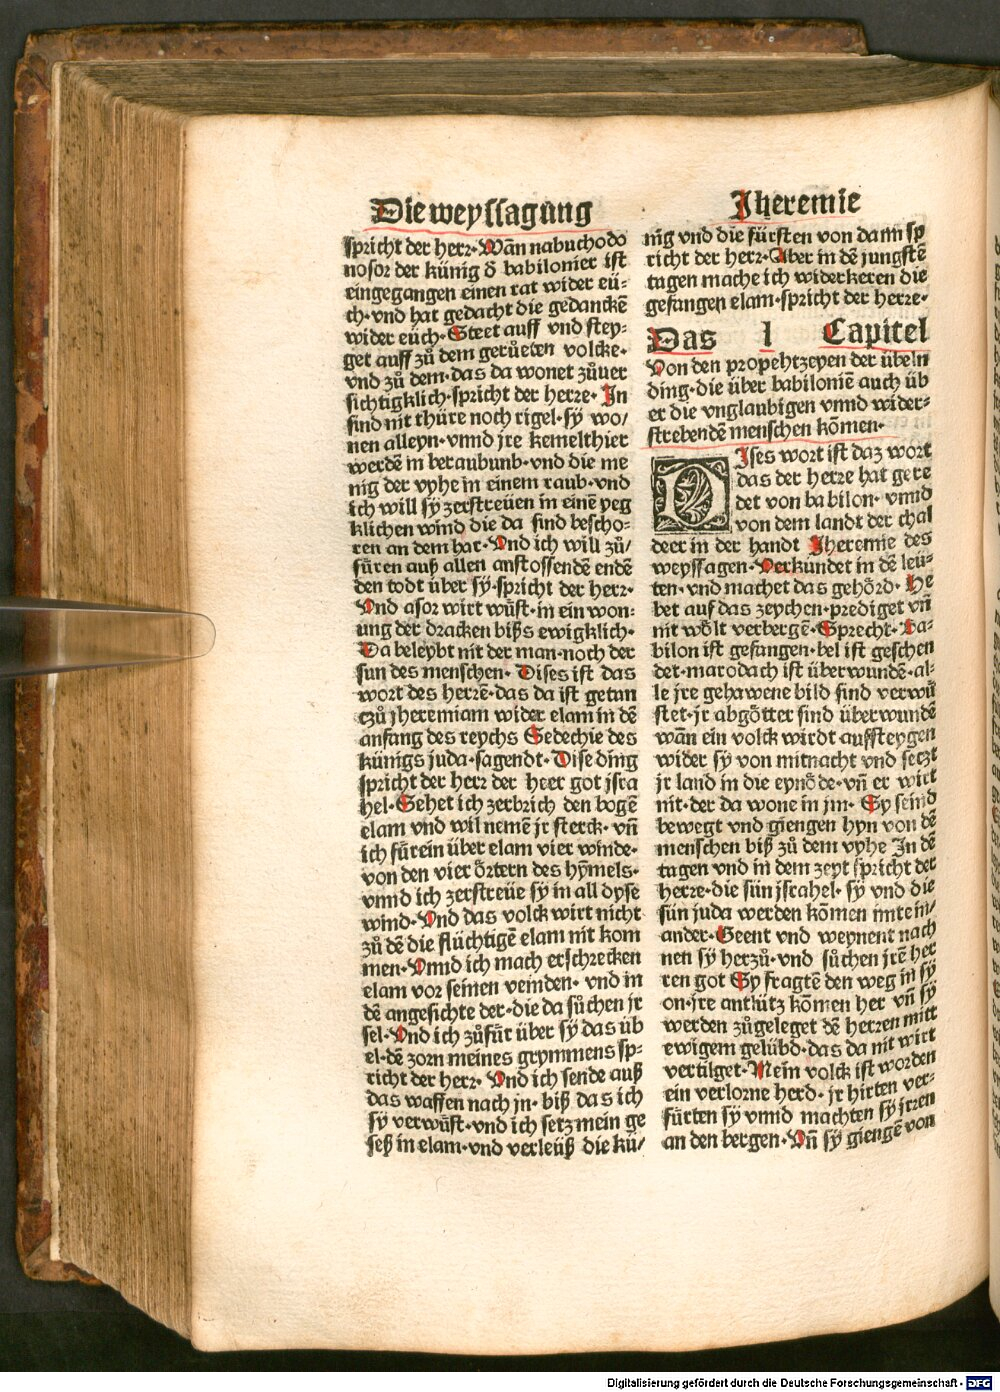 Die weyssagung
spricht der herr·Wañ nabuchodo
nosor der künig d̄ babilonier ist
eingegangen einen rat wider eü:
ch·vnd hat gedacht die gedanckē
wider eüch·Steet auff vnd stey:
get auff zů dem gerůeten volcke·
vnd zů dem·das da wonet zůuer
sichtigklich·spricht der herre·In
sind nit thüre noch rigel·sy wo/
nen alleyn·vnnd jre kemelthier
werdē in beraubunb·vnd die me
nig der vyhe in einem raub·vnd
ich will sy zerstreüen in einē yeg
klichen wind die da sind bescho:
ren an dem har·Vnd ich will zů/
füren auß allen anstossende endē
den todt über sy·spricht der herr·
Vnd asor wirt wůst·in ein won:
ung der dracken biß ewigklich·
Da beleybt nit der man·noch der
sun des menschen·Dises ist das
wort des herrē·das da ist getan
czů jheremiam wider elam in dē
anfang des reychs Sedechie des
künigs juda·sagendt·Dise ding
spricht der herr der heer got jsra
hel·Sehet ich zerbrich den bogē
elam vnd wil nemē jr sterck·vñ
ich fůrein über elam vier winde·
von den vier örtern des hymels·
vnnd ich zerstreüe sy in all dyse
wind·Vnd das volck wirt nicht
zů dē die flüchtigē elam nit kom
men·Vnnd ich mach erschrecken
elam vor seinen veinden·vnd in
dē angesichte der·die da sůchen jr
sel·Vnd ich zůfür über sy das üb
el·dē zorn meines grymmens sp:
richt der herr·Vnd ich sende auß
das waffen nach jn·biß das ich
sy verwůst·vnd ich setz mein ge
seß in elam·vnd verleüß die kü/
Jheremie
nig vnd die fürsten von dann sp
richt der herr·Aber in dē jungstē
tagen mache ich widerkeren die
gefangen elam·spricht der herre·
Das l Capitel
Von den propehtzeyen der übeln
ding·die über babiloniē auch üb
er die vnglaubigen vnnd wider:
strebendē menschen kōmen·
DIses wort ist daz wort
das der herre hat gere
det von babilon·vnnd
von dem landt der chal
deer in der handt Jheremie des
weyssagen·Verkündet in dē leü:
ten·vnd machet das gehörd·He
bet auf das zeychen·prediget vñ
nit wölt verbergē·Sprecht·Ba:
bilon ist gefangen·bel ist geschen
det·marodach ist überwundē·al:
le jre gehawene bild sind verwů
stet·jr abgötter sind überwundē
wañ ein volck wirdt auffsteygen
wider sy von mitnacht vnd setzt
jr land in die eynöde·vñ er wirt
nit·der da wone in jm·Sy seind
bewegt vnd giengen hyn von dē
menschen biß zů dem vyhe In dē
tagen vnd in dem zeyt spricht der
herre·die sün jsrahel·sy vnd die
sün juda werden kōmen mitein/
ander·Geent vnd weynent nach
nen sy herzů·vnd sůchen jrē her
ren got Sy fragtē den weg in sy
on·jre antlütz kōmen her vñ sy
werden zůgeleget dē herren mitt
ewigem gelübd·das da nit wirt
vertilget·Mein volck ist worden
ein verlorne herd·jr hirten ver:
fürten sy vnnd machten sy jrren
an den bergen·Vñ sy giengē von
Digitalisierung gefördert durch die Deutsche Forschungsgemeinschaft - DFG